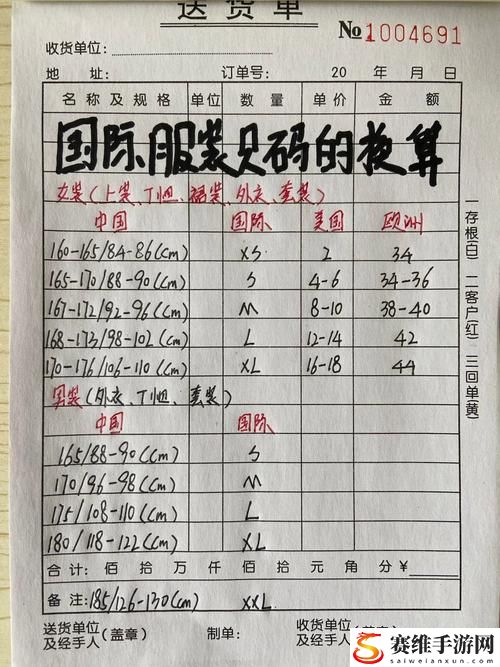 送货单
№1004691
收货单位:
地 址: 订单号: 20 年 月 日
名称及规格 单位 数量 单价 金额
国际服装尺码的换算
女装(上装、T恤、裙装、外衣、套装)
中国 国际 美国 欧洲
160-165/84-86(cm) XS 2 34
165-170/88-90(cm) S 4-6 34-36
167-172/92-96(cm) M 8-10 38-40
168-173/98-102(cm) L 12-14 42
170-176/106-110(cm) XL 16-18 44
男装(外衣、T恤、套装)
中国 国际
165/88-90(cm) S
170/96-98(cm) M
175/108-110(cm) L
180/118-122(cm) XL
合计: 佰 拾 万 仟 佰 拾 元 角 分 ¥
备注: 185/126-130(cm) XXL
送货单位及经手人(盖章) 制单: 收货单位及经手人(盖章)
一存根(白) 二客户(红) 三回单(黄)
赛维手游网
saiweiianxun.com